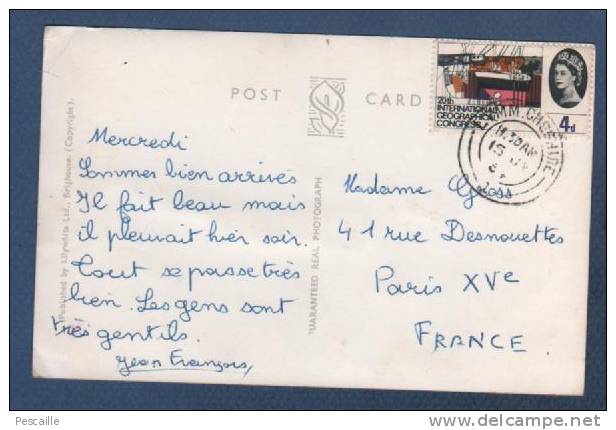 POST CARD
20th
INTERNATIONAL
GEOGRAPHICAL
CONGRESS
4d
CHESHIRE
11.30AM
15
Mercredi
Sommes bien arrivés
Il fait beau mais
il pleuvait hier soir.
Tout se passe très
bien. Les gens sont
très gentils.
Jean François
Madame
41 rue Desnouettes
Paris XVe
FRANCE
Published by Lilywhite Ltd., Brighouse. (Copyright).
GUARANTEED REAL PHOTOGRAPH
Pescaille
www.delcampe.net